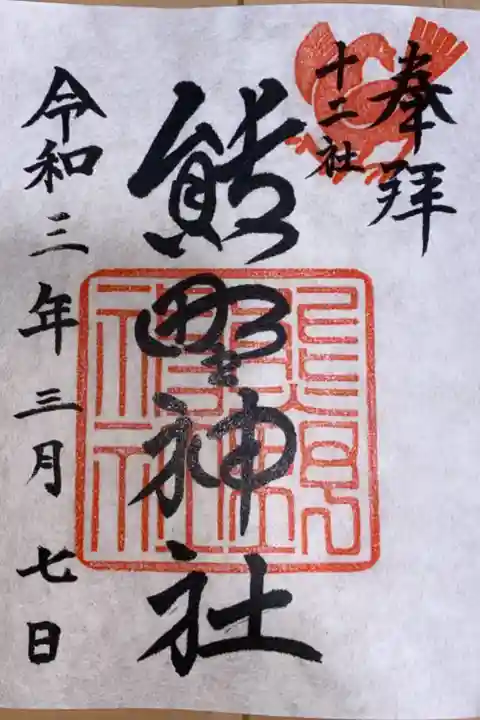 奉拝
十二社
熊野神社
令和三年三月七日